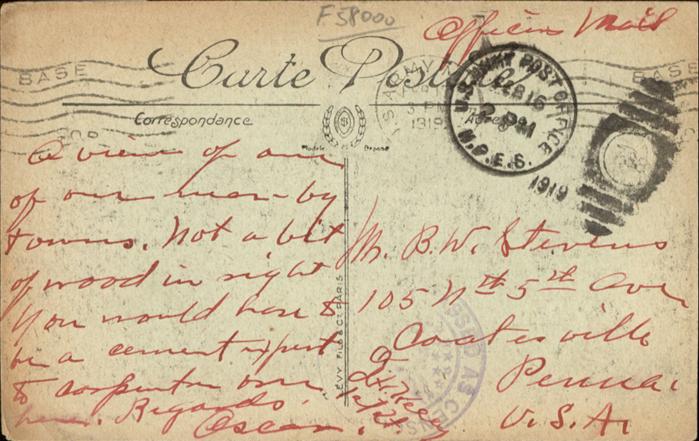 F 58000
Officers Mail
Carte Post
BASE
Correspondance
1919
U.S. ARMY POST OFFICE
FEB 16
PM
M.P.E.S.
1919
Modèle Déposé
A view of one
of our near-by
towns. Not a bit
of wood in sight
You would have to
be a cement expert
to carpenter over
here. Regards.
Oscar.
LEVY FILS & Cie PARIS
Mr. B.W. Stevens
105 Nth 5th Ave
Coatesville
Penna.
U.S.A.
PASSED AS CENSORED